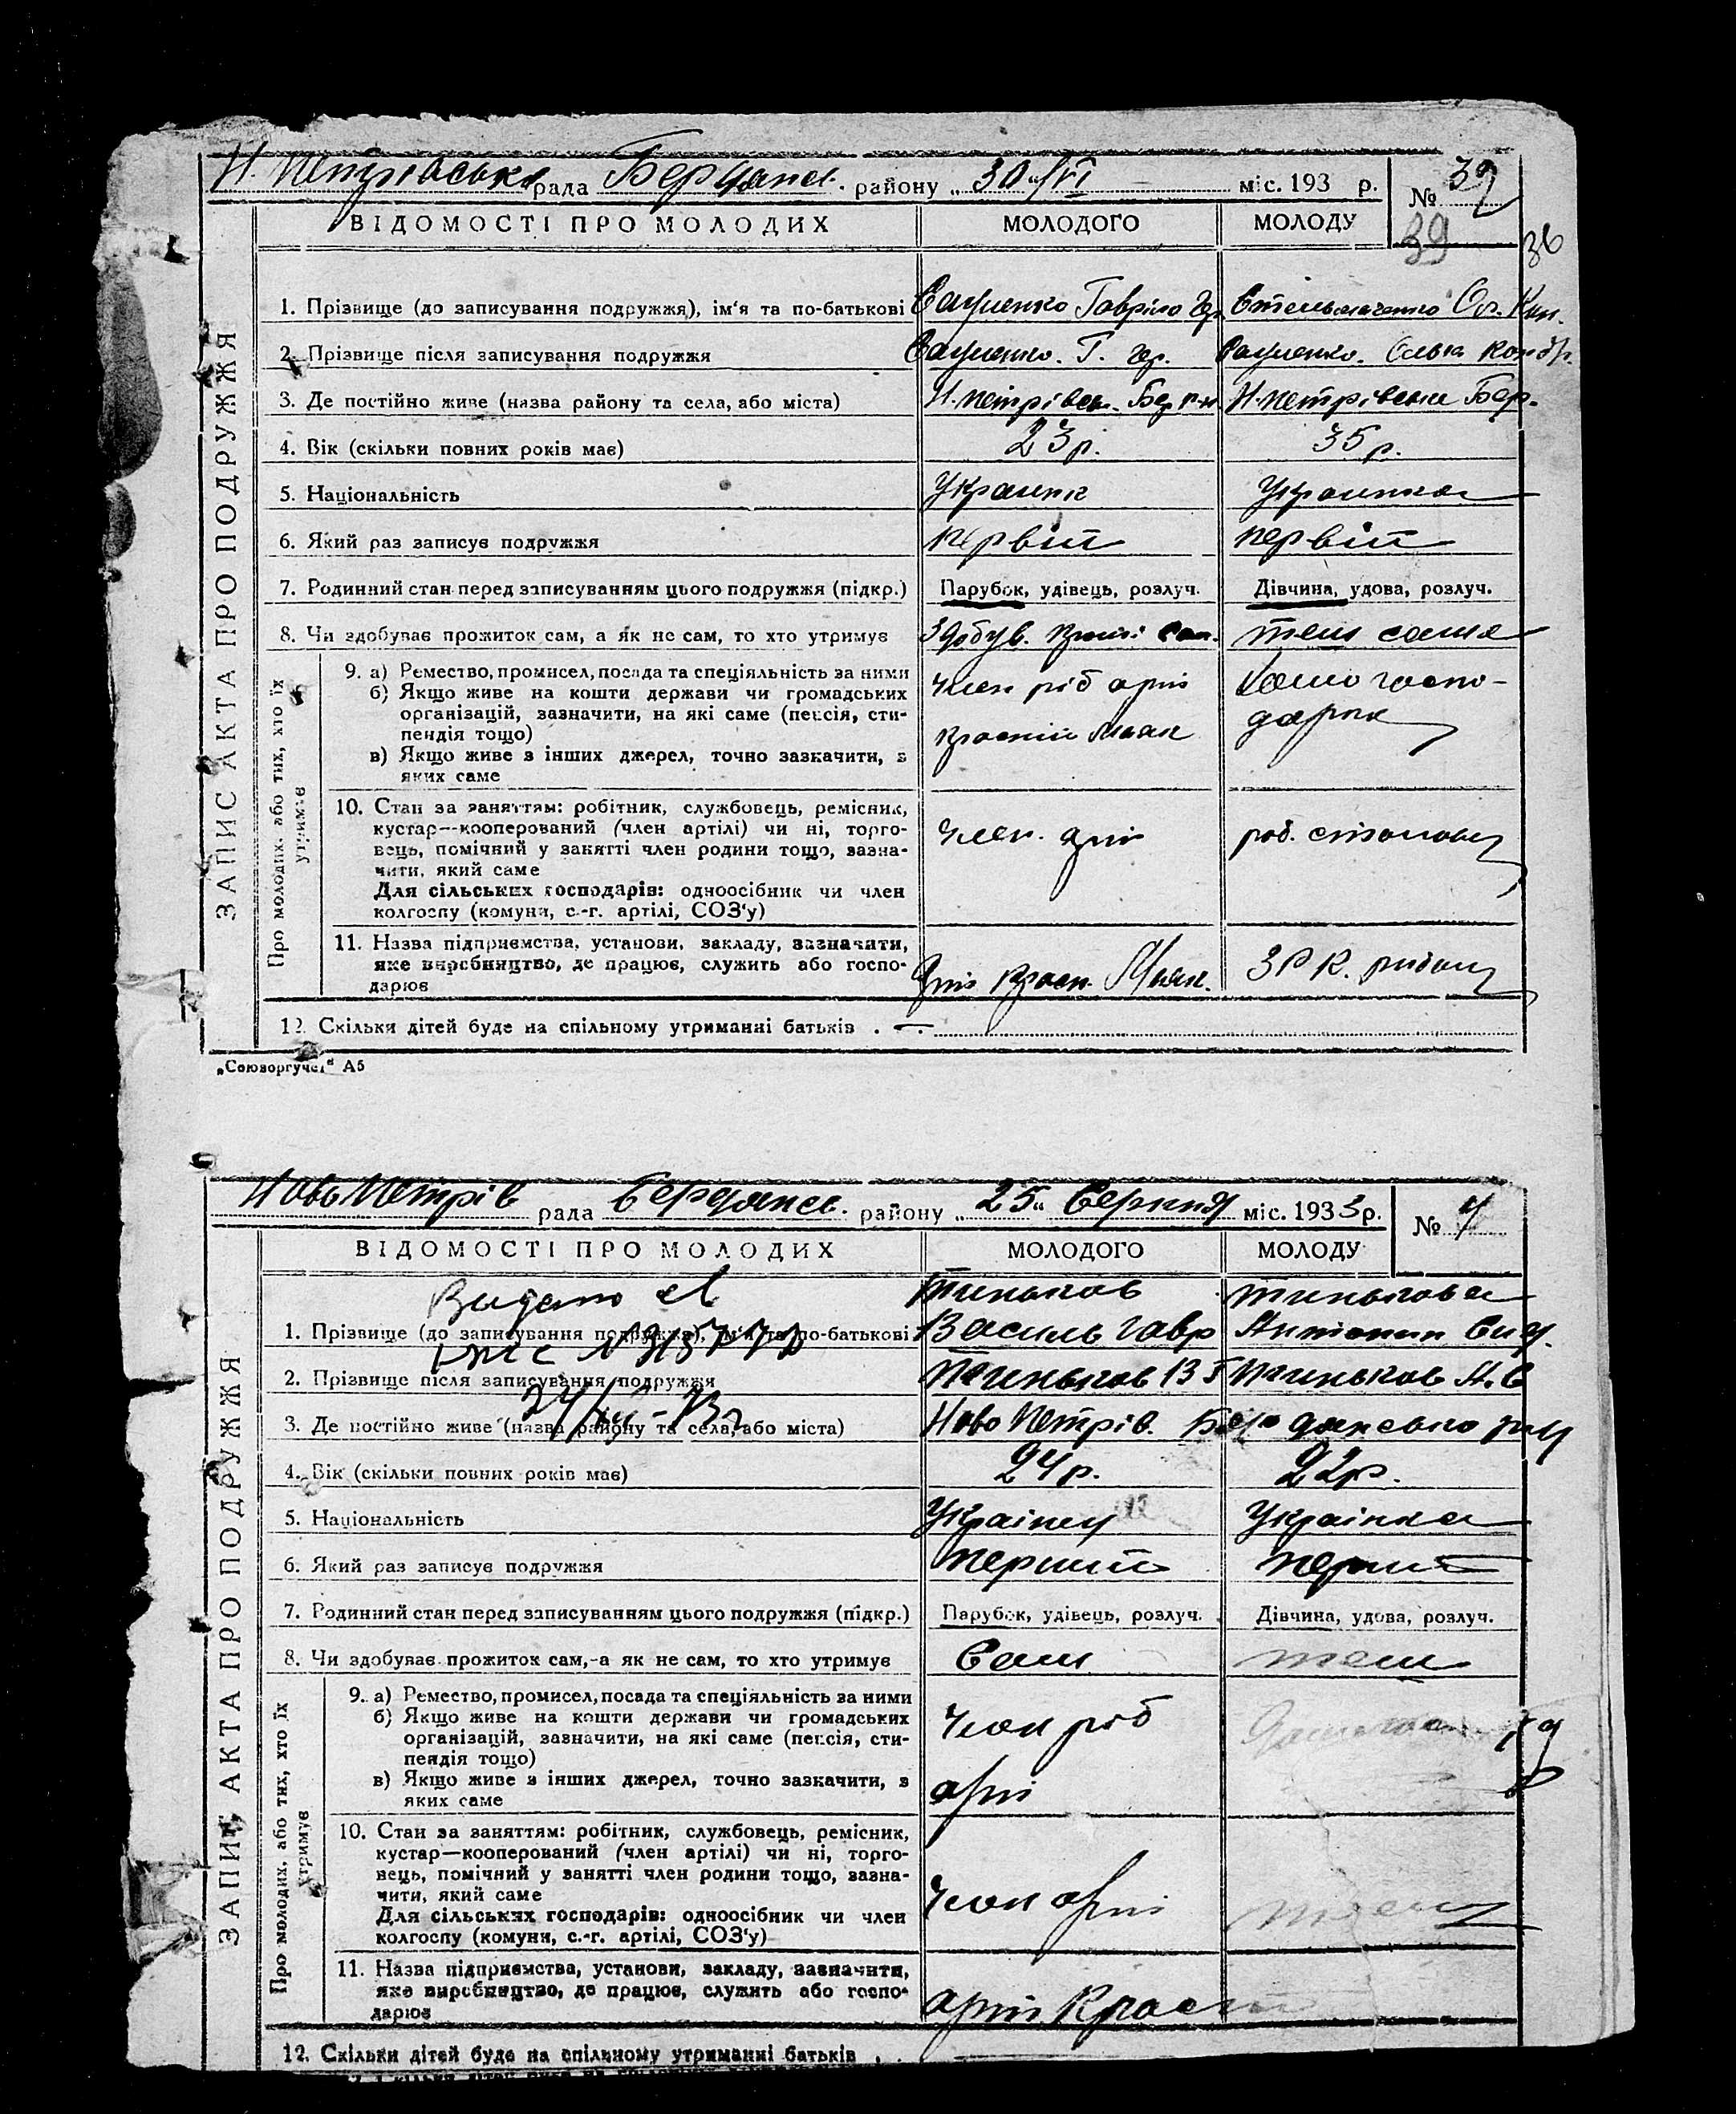 Н. Петрівська рада Бердянсь. району „30“ VI міс. 193 р. № 39
ВІДОМОСТІ ПРО МОЛОДИХ МОЛОДОГО МОЛОДУ 39 36
ЗАПИС АКТА ПРО ПОДРУЖЖЯ
1. Прізвище (до записування подружжя), ім'я та по-батькові Гаврило
2. Прізвище після записування подружжя Г. Гр. Ольга Кондр.
3. Де постійно живе (назва району та села, або міста) Н.Петрівськ. Бер р-н Н-Петрівське Бер.
4. Вік (скільки повних років має) 23 р. 35 р.
5. Національність Украинк Украинка
6. Який раз записує подружжя первий первий
7. Родинний стан перед записуванням цього подружжя (підкр.) Парубок, удівець, розлуч. Дівчина, удова, розлуч.
8. Чи здобуває прожиток сам, а як не сам, то хто утримує здобув. сам. теш сама
Про молодих, або тих, хто їх утримує
9. а) Ремество, промисел, посада та спеціяльність за ними
б) Якщо живе на кошти держави чи громадських член риб арт домогоспо-
організацій, зазначити, на які саме (пенсія, сти- дарка
пендія тощо) Красний Маяк
в) Якщо живе з інших джерел, точно зазначити, з
яких саме
10. Стан за заняттям: робітник, службовець, ремісник,
кустар—кооперований (член артілі) чи ні, торго- член. арт роб. столовы
вець, помічний у занятті член родини тощо, зазна-
чити, який саме
Для сільських господарів: одноосібник чи член
колгоспу (комуни, с.-г. артілі, СОЗ'у)
11. Назва підприємства, установи, закладу, зазначити,
яке виробництво, де працює, служить або госпо- арт Красн. Маяк. ЗРК.
дарює
12. Скільки дітей буде на спільному утриманні батьків . —
„Союзоргучет“ А5
Ново Петрів рада Бердянсь. району „25“ Серпня міс. 1933 р. №
ВІДОМОСТІ ПРО МОЛОДИХ МОЛОДОГО МОЛОДУ
ЗАПИС АКТА ПРО ПОДРУЖЖЯ
Видано Тиньков Тинькова
1. Прізвище (до записування подружжя), ім'я та по-батькові Василь Гавр Антонин
2. Прізвище після записування подружжя Тиньков В Г Тиньков А.С
3. Де постійно живе (назва району та села, або міста) Ново Петрів. Бердянсько
4. Вік (скільки повних років має) 24 р. 22 р.
5. Національність Українец Українка
6. Який раз записує подружжя перший перший
7. Родинний стан перед записуванням цього подружжя (підкр.) Парубок, удівець, розлуч. Дівчина, удова, розлуч.
8. Чи здобуває прожиток сам, а як не сам, то хто утримує Сам теш
Про молодих, або тих, хто їх утримує
9. а) Ремество, промисел, посада та спеціяльність за ними
б) Якщо живе на кошти держави чи громадських член риб
організацій, зазначити, на які саме (пенсія, сти-
пендія тощо)
в) Якщо живе з інших джерел, точно зазначити, з арт
яких саме
10. Стан за заняттям: робітник, службовець, ремісник,
кустар—кооперований (член артілі) чи ні, торго-
вець, помічний у занятті член родини тощо, зазна- член арт
чити, який саме
Для сільських господарів: одноосібник чи член
колгоспу (комуни, с.-г. артілі, СОЗ'у)
11. Назва підприємства, установи, закладу, зазначити,
яке виробництво, де працює, служить або госпо- арт.
дарює
12. Скільки дітей буде на спільному утриманні батьків .